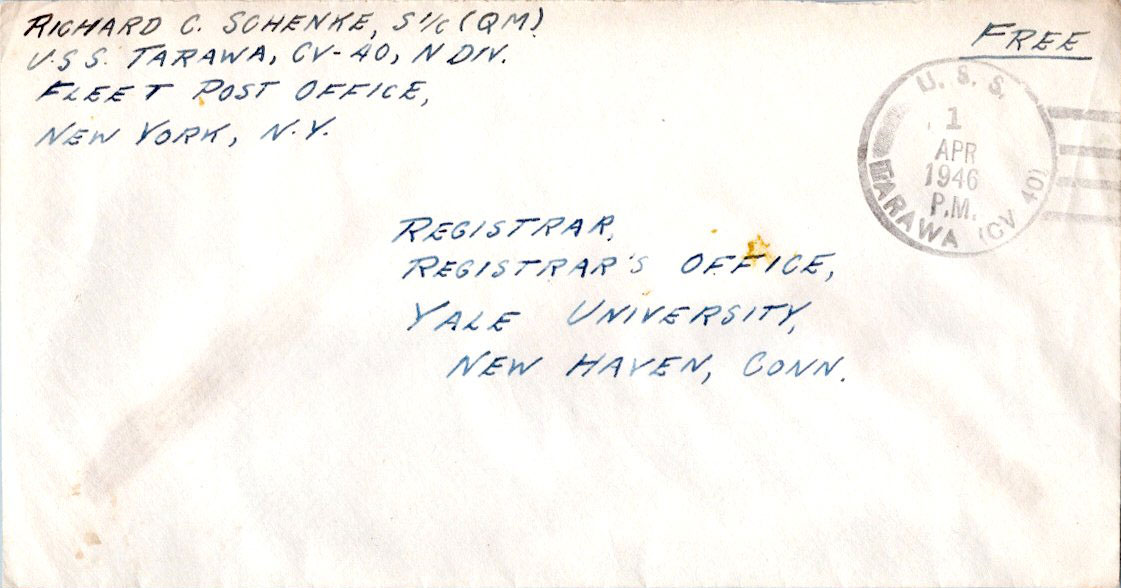 RICHARD C. SCHENKE, S 1/c (QM)
U.S.S. TARAWA, CV-40, N DIV.
FLEET POST OFFICE,
NEW YORK, N.Y.
FREE
U. S. S.
1
APR
1946
P.M.
TARAWA (CV 40)
REGISTRAR,
REGISTRAR'S OFFICE,
YALE UNIVERSITY,
NEW HAVEN, CONN.